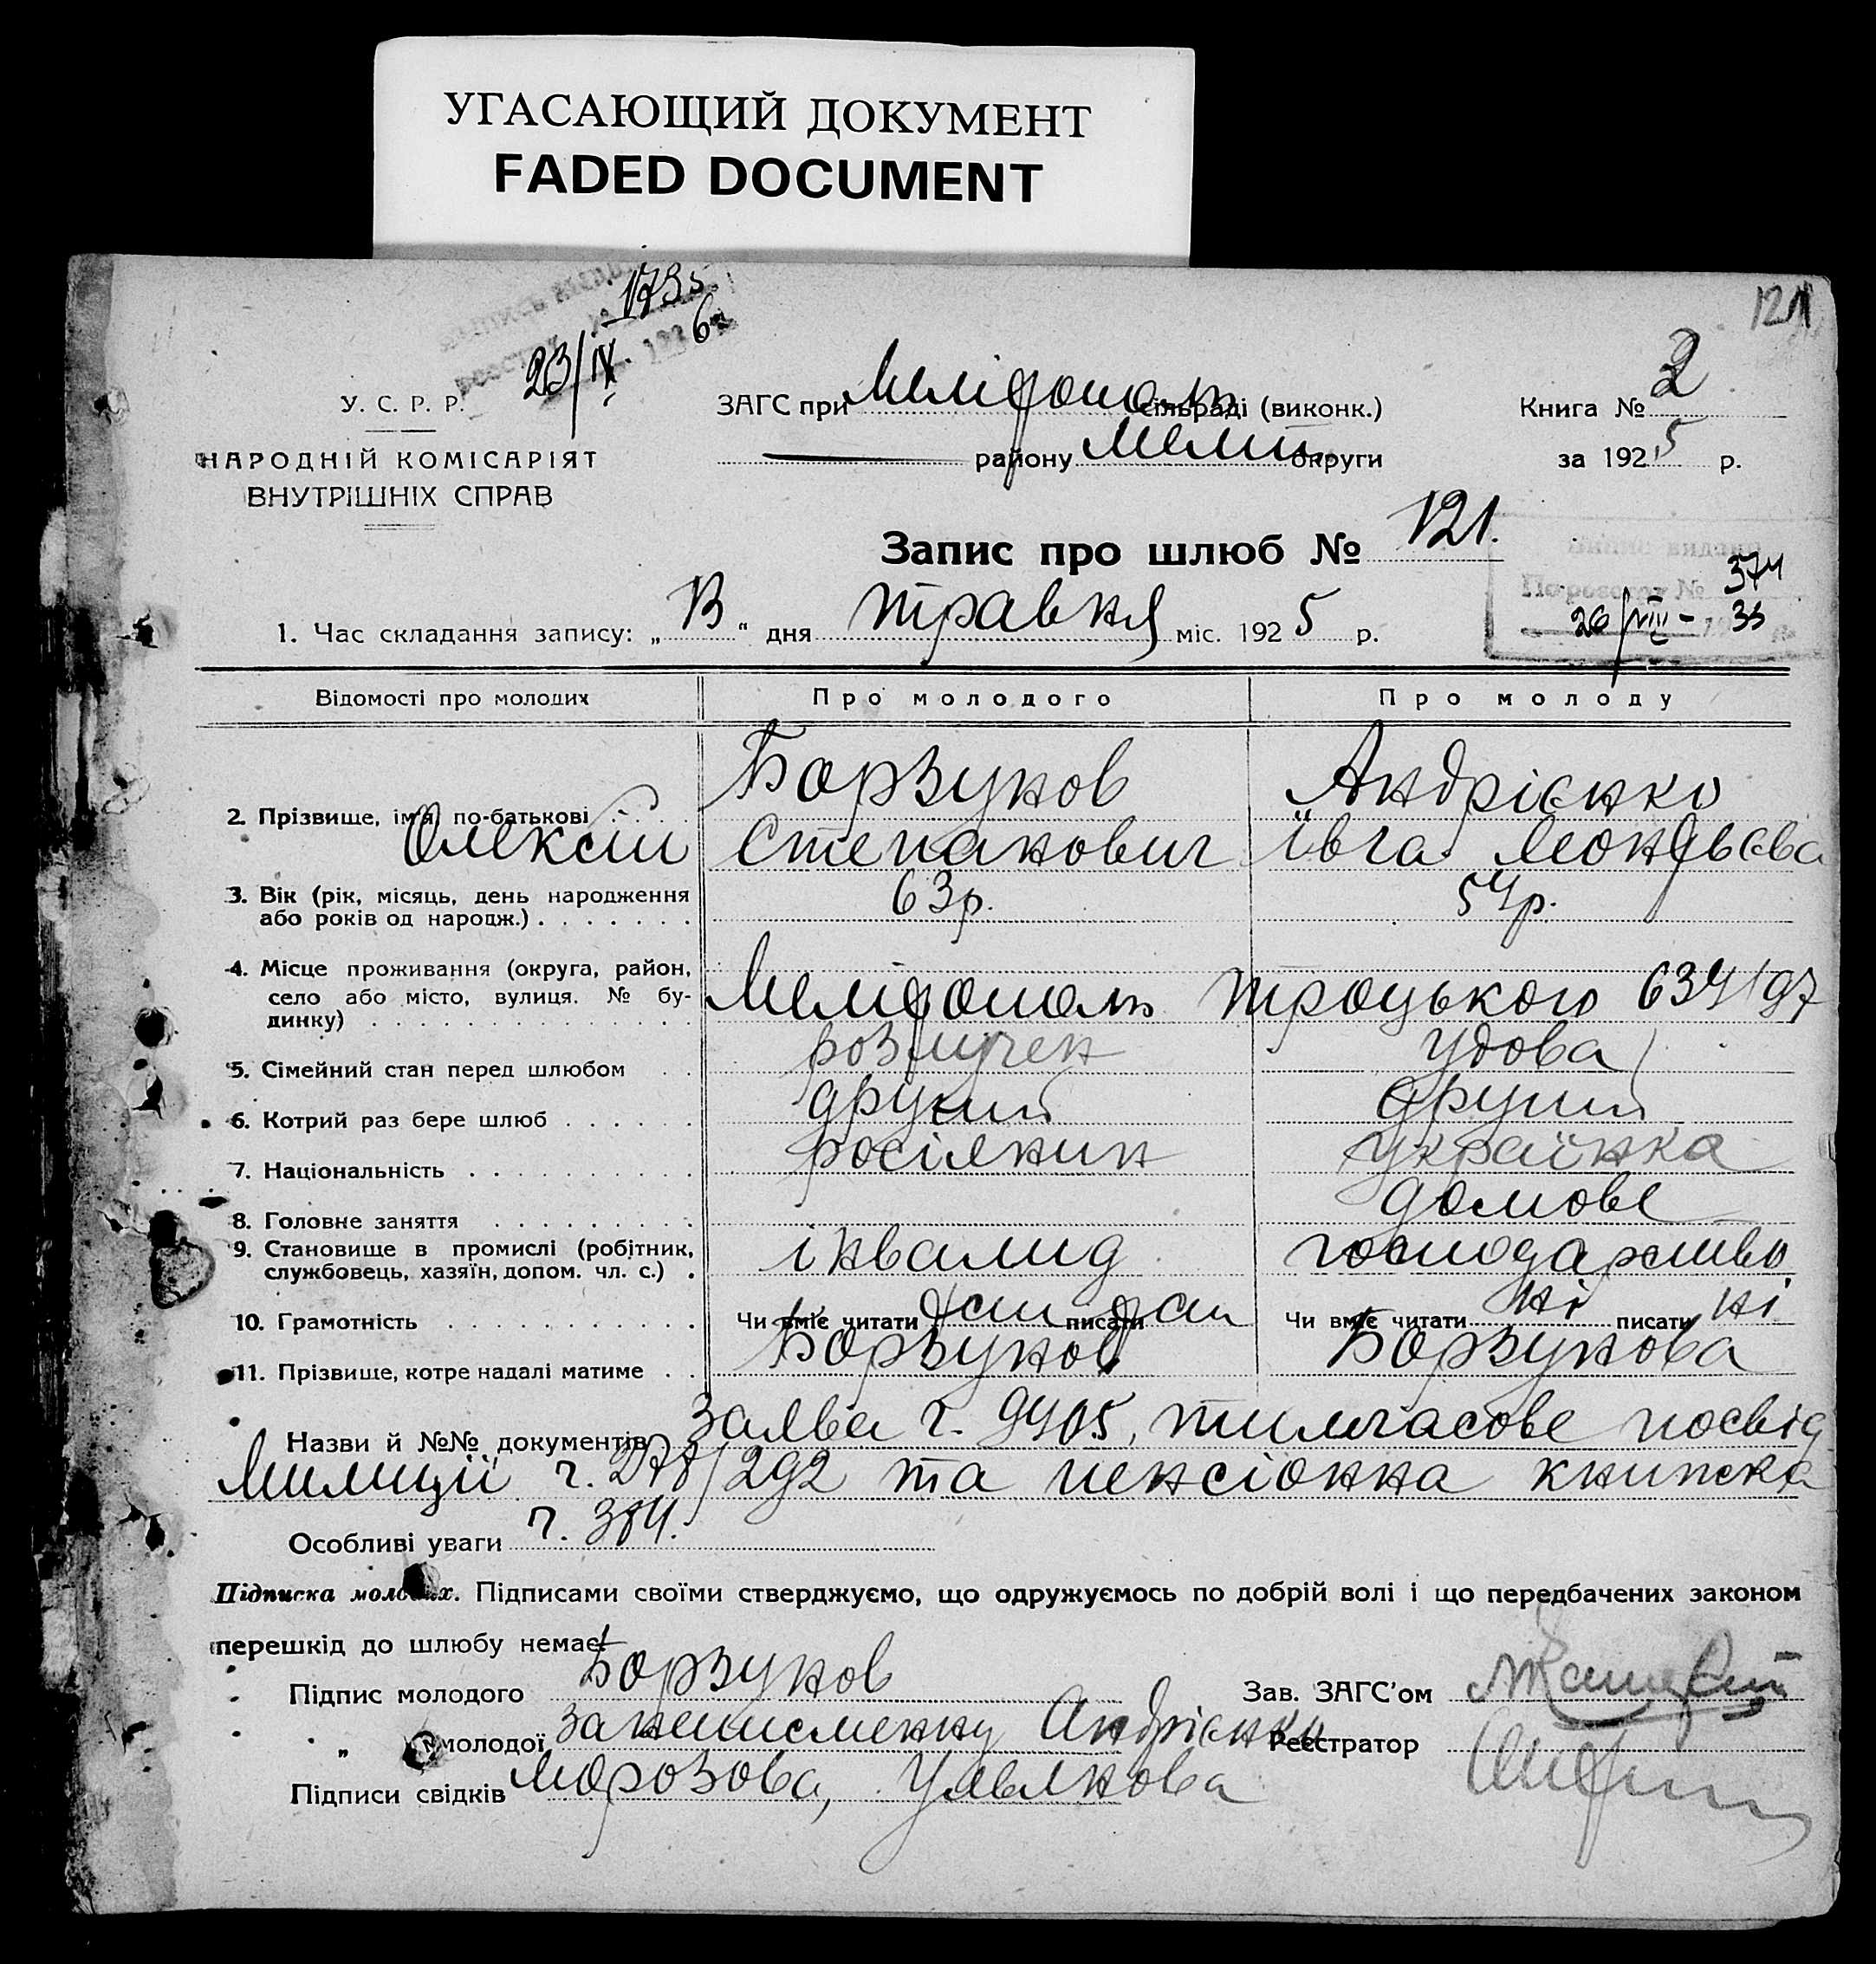 УГАСАЮЩИЙ ДОКУМЕНТ
FADED DOCUMENT
1735
6
23/IX.
121
У. С. Р. Р.
НАРОДНІЙ КОМІСАРІЯТ
ВНУТРІШНІХ СПРАВ
ЗАГС при Меліфополь сільраді (виконк.)
району Меліт. округи
Книга № 2
за 1925 р.
Запис про шлюб № 121.
По реєстру № 374
26/VIII - 33
1. Час складання запису: „13“ дня травня міс. 1925 р.
Відомості про молодих Про молодого Про молоду
2. Прізвище, ім'я, по-батькові Борзунов Андрієнко
Олексій Степанович Івга Леонфьєва
3. Вік (рік, місяць, день народження або років од народж.) 63р. 54р.
4. Місце проживання (округа, район, село або місто, вулиця. № будинку) Меліфополь Троцького 634/97
5. Сімейний стан перед шлюбом розлучен удова
6. Котрий раз бере шлюб другий другий
7. Національність росіянин українка
8. Головне заняття домове
9. Становище в промислі (робітник, службовець, хазяїн, допом. чл. с.) інвалид господарство
10. Грамотність Чи вміє читати так писати так Чи вміє читати ні писати ні
11. Прізвище, котре надалі матиме Борзунов Борзунова
Назви й №№ документів Заява ч. 9405, тимчасове посвід
Милиції ч. 278/292 та пенсіонна книжка
Особливі уваги ч. 384.
Підписка молодих. Підписами своїми стверджуємо, що одружуємось по добрій волі і що передбачених законом
перешкід до шлюбу немає.
Підпис молодого Борзунов Зав. ЗАГС'ом
„ молодої за неписменну Андрієнко Реєстратор
Підписи свідків Морозова,